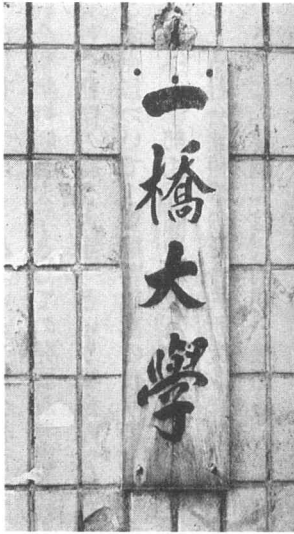 一橋大學